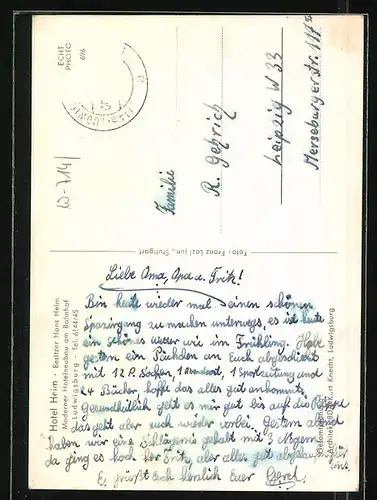 ECHT
PHOTO
696
Familie
R. Gehrich
Leipzig W 33
Merseburgerstr. 117
Foto: Franz Lazi jun., Stuttgart
Hotel Heim - Besitzer Hans Heim
Moderner Hotelneubau am Bahnhof
Ludwigsburg - Tel. 6144/45
Karl Knecht, Ludwigsburg
Liebe Oma, Opa u. Fritz!
Bin heute wieder mal einen schönen
Spaziergang zu machen unterwegs, es ist heute
ein schönes wie im Frühling. Habe
gestern ein Päckchen an Euch abgeschickt
mit 12 P. Socken, 1 1 Sportzeitung und
4 Bücher hoffe das alles gut ankommt.
Gesundheitlich geht es mir gut bis auf die
das geht aber auch wieder vorbei. Gestern abend
haben wir eine Schlägerei gehabt mit 3 Negern
da ging es hoch her Fritz, aber alles gut abgelaufen für uns.
Es grüßt Euch herzlich Euer Gerd